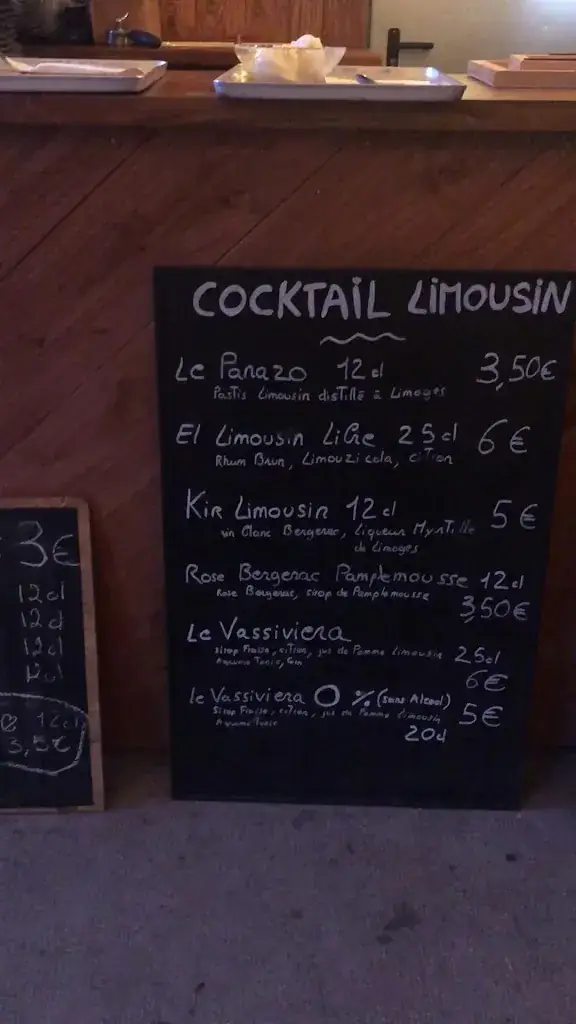 COCKTAIL LIMOUSIN
Le Panazo 12 cl 3,50€
Pastis Limousin distillé à Limoges
El Limousin Libre 25 cl 6€
Rhum Brun, Limouzi cola, citron
Kir Limousin 12 cl 5€
vin blanc Bergerac, Liqueur Myrtille
de Limoges
Rose Bergerac Pamplemousse 12 cl
Rose Bergerac, sirop de Pamplemousse
3,50€
Le Vassiviera
sirop Fraise, citron, jus de Pomme Limousin 25cl
Tonic, Gin
6€
le Vassiviera 0 % (sans Alcool)
Sirop Fraise, citron, jus de Pomme Limousin 5€
Tonic
20cl
3€
12cl
12cl
12cl
12cl
12cl
3,5€